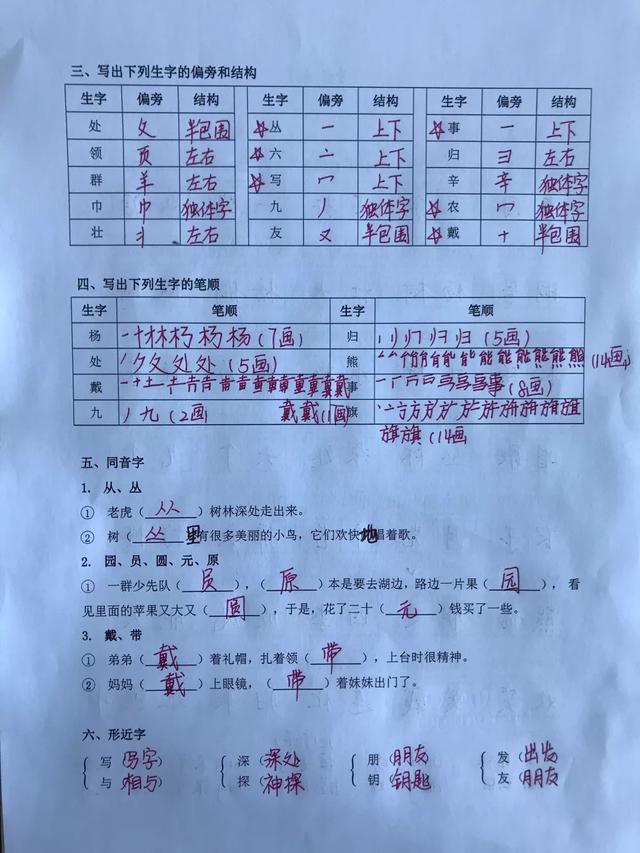 三、写出下列生字的偏旁和结构
生字 偏旁 结构 生字 偏旁 结构 生字 偏旁 结构
处 夂 半包围 ☆丛 一 上下 ☆事 一 上下
领 页 左右 ☆六 亠 上下 归 彐 左右
群 羊 左右 ☆写 冖 上下 辛 辛 独体字
巾 巾 独体字 九 丿 独体字 ☆农 冖 独体字
壮 丬 左右 友 又 半包围 ☆戴 十 半包围
四、写出下列生字的笔顺
生字 笔顺 生字 笔顺
杨 杨(7画) 归 归(5画)
处 处(5画) 熊 熊(14画)
戴 事 事(8画)
九 丿九(2画 戴戴 旗 旗
旗旗(14画
五、同音字
1. 从、丛
① 老虎(从)树林深处走出来。
② 树(丛)里有很多美丽的小鸟,它们欢快地唱着歌。
2. 园、员、圆、元、原
① 一群少先队(员),(原)本是要去湖边,路边一片果(园), 看
见里面的苹果又大又(圆),于是,花了二十(元)钱买了一些。
3. 戴、带
① 弟弟(戴)着礼帽,扎着领(带),上台时很精神。
② 妈妈(戴)上眼镜,(带)着妹妹出门了。
六、形近字
写(写字) 深(深处) 朋(朋友) 发(出发)
与(相与) 探(神探) 钥(钥匙) 友(朋友)